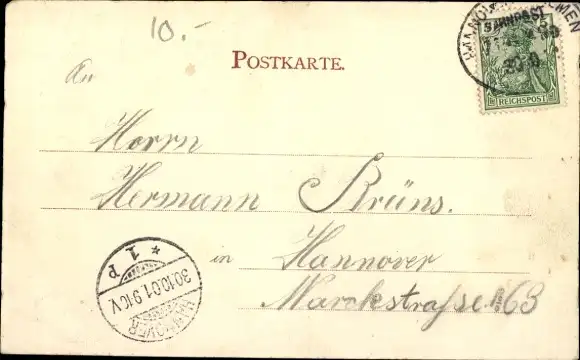 10.-
POSTKARTE.
An
BAHNPOST
REICHSPOST
Herrn
Hermann Brüns.
in Hannover
Marckstrafse 63
HANNOVER
30.10.01.9-10V.
* 1 P